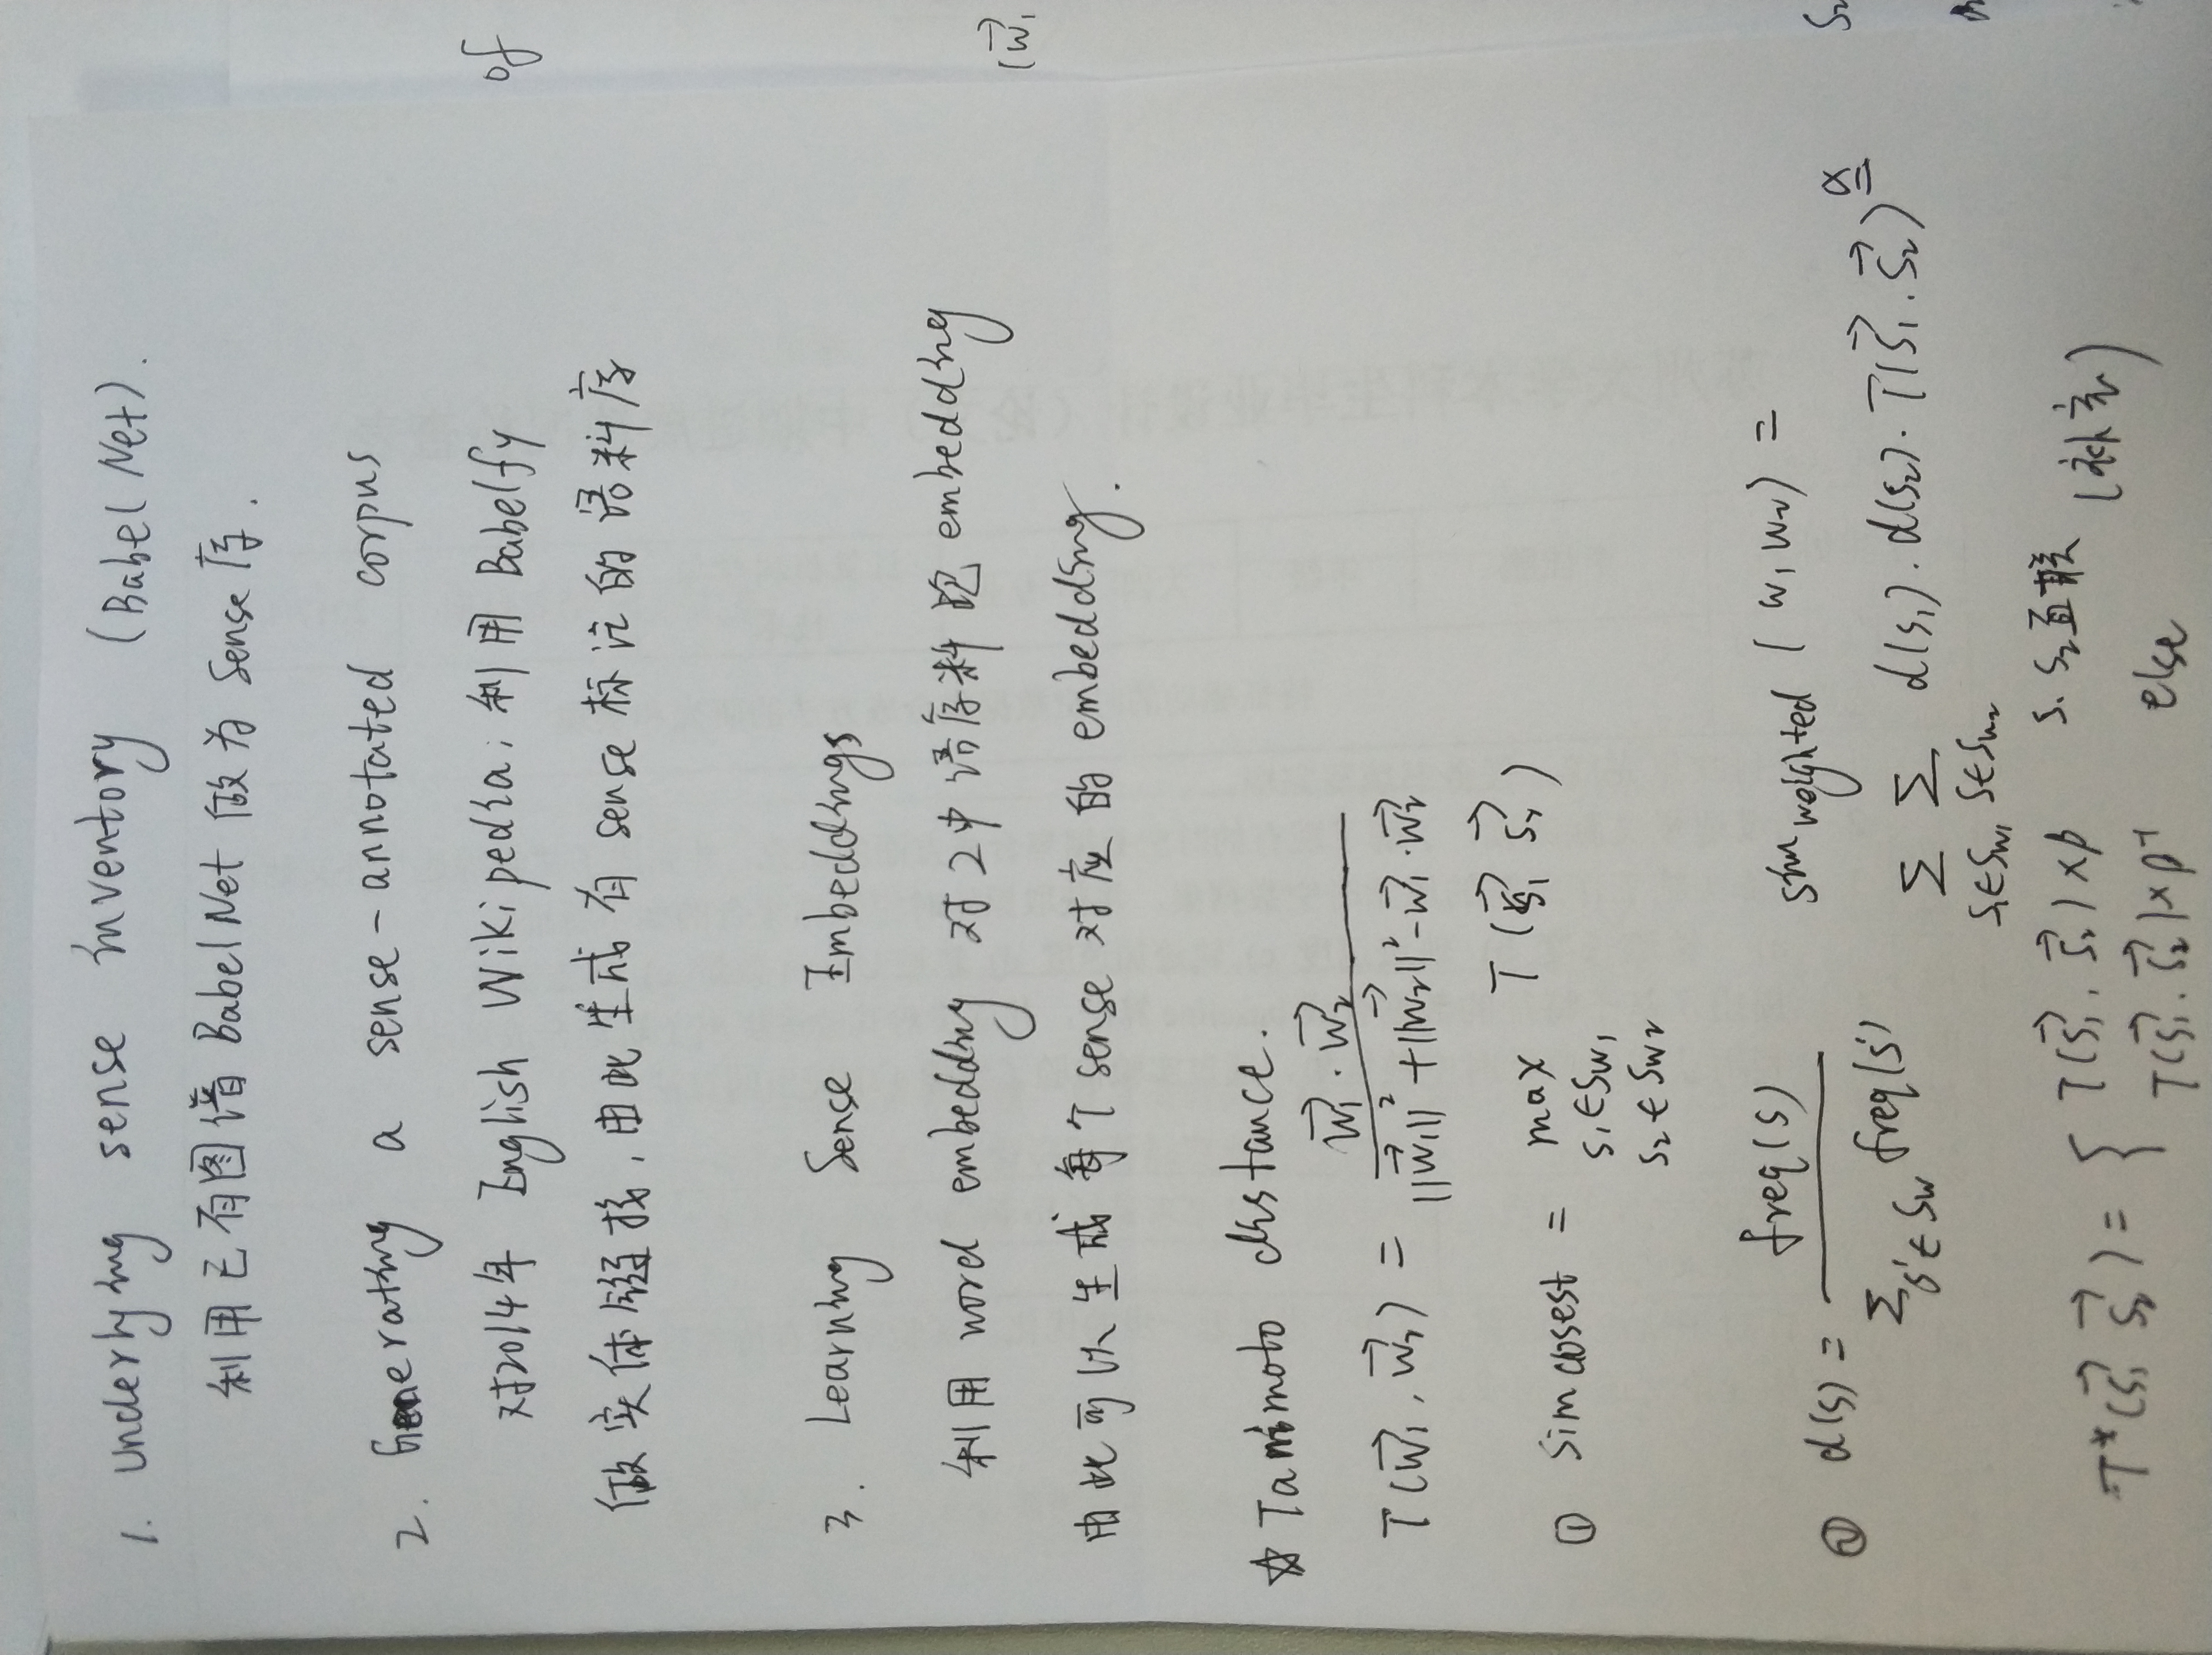 1. Underlying sense inventory (BabelNet).
利用已有图谱 BabelNet 做为 Sense 库.
2. Generating a sense-annotated corpus
对2014年 English Wikipedia, 利用 Babelfy
做实体链接, 由此生成有 sense 标注的语料库
3. Learning Sense Embeddings
利用 word embedding 对2中语库料跑 embedding
由此可以生成每个 sense 对应的 embedding.
☆ Tanimoto distance.
T(w⃗₁, w⃗₂) = (w⃗₁ · w⃗₂) / (||w⃗₁||² + ||w⃗₂||² - w⃗₁ · w⃗₂)
① Sim closest = max T(s⃗₁ s⃗₂)
s₁ ∈ Sw₁
s₂ ∈ Sw₂
② d(s) = freq(s) / Σ s'∈Sw freq(s')
sim weighted (w₁ w₂) =
Σ s₁∈Sw₁ Σ s∈Sw₂ d(s₁) · d(s₂) · T(s⃗₁, s⃗₂)^α
T*(s⃗₁ s⃗₂) = { T(s⃗₁, s⃗₂) × β s₁ s₂直联
T(s⃗₁, s⃗₂) × β⁻¹ else
(补充)
of
(w⃗₁
S₂